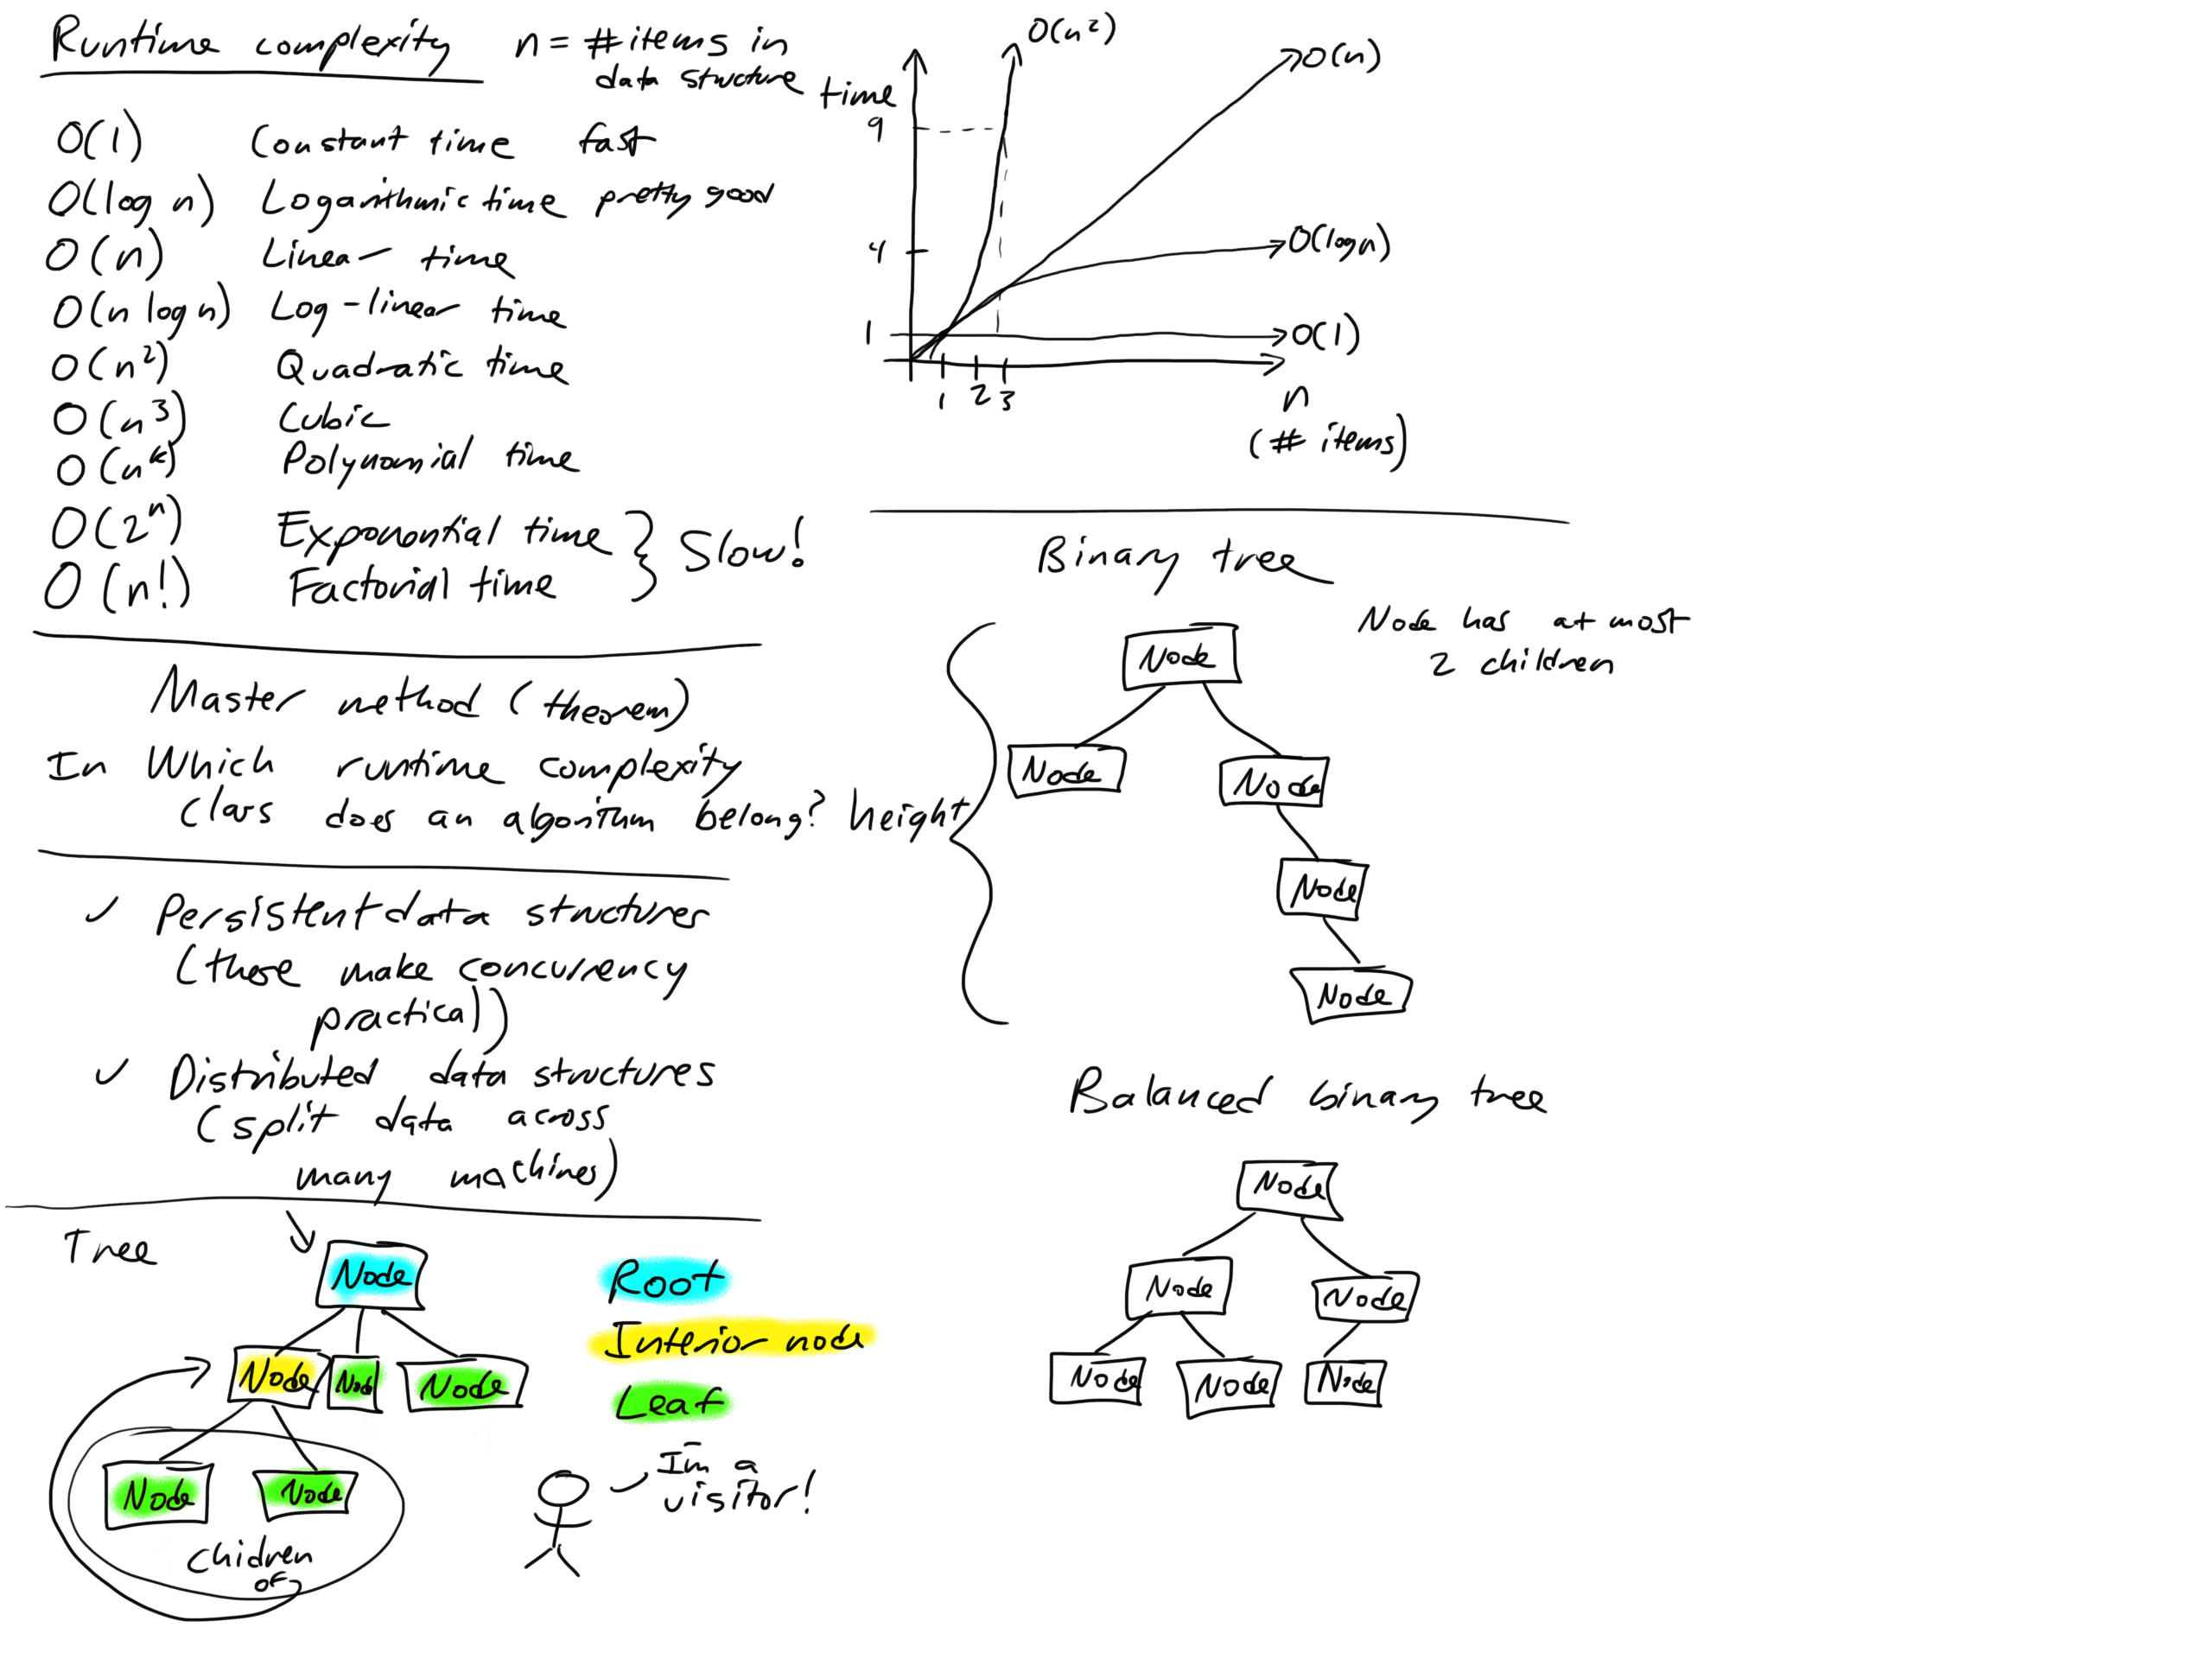 Runtime complexity n = # items in
data structure
O(1) Constant time fast
O(log n) Logarithmic time pretty good
O(n) Linear time
O(n log n) Log-linear time
O(n²) Quadratic time
O(n³) Cubic
O(nᵏ) Polynomial time
O(2ⁿ) Exponential time } Slow!
O(n!) Factorial time
Master method (theorem)
In Which runtime complexity
class does an algorithm belong?
✓ Persistent data structures
(these make concurrency
practical)
✓ Distributed data structures
(split data across
many machines)
Tree
Node
Node Node Node
Node Node
Chidren
of
Root
Interior node
Leaf
I'm a
visitor!
time
9
4
1
1 2 3
O(n²)
O(n)
O(log n)
O(1)
n
(# items)
Binary tree
Node has at most
2 children
height
Node
Node Node
Node
Node
Balanced binary tree
Node
Node Node
Node Node Node